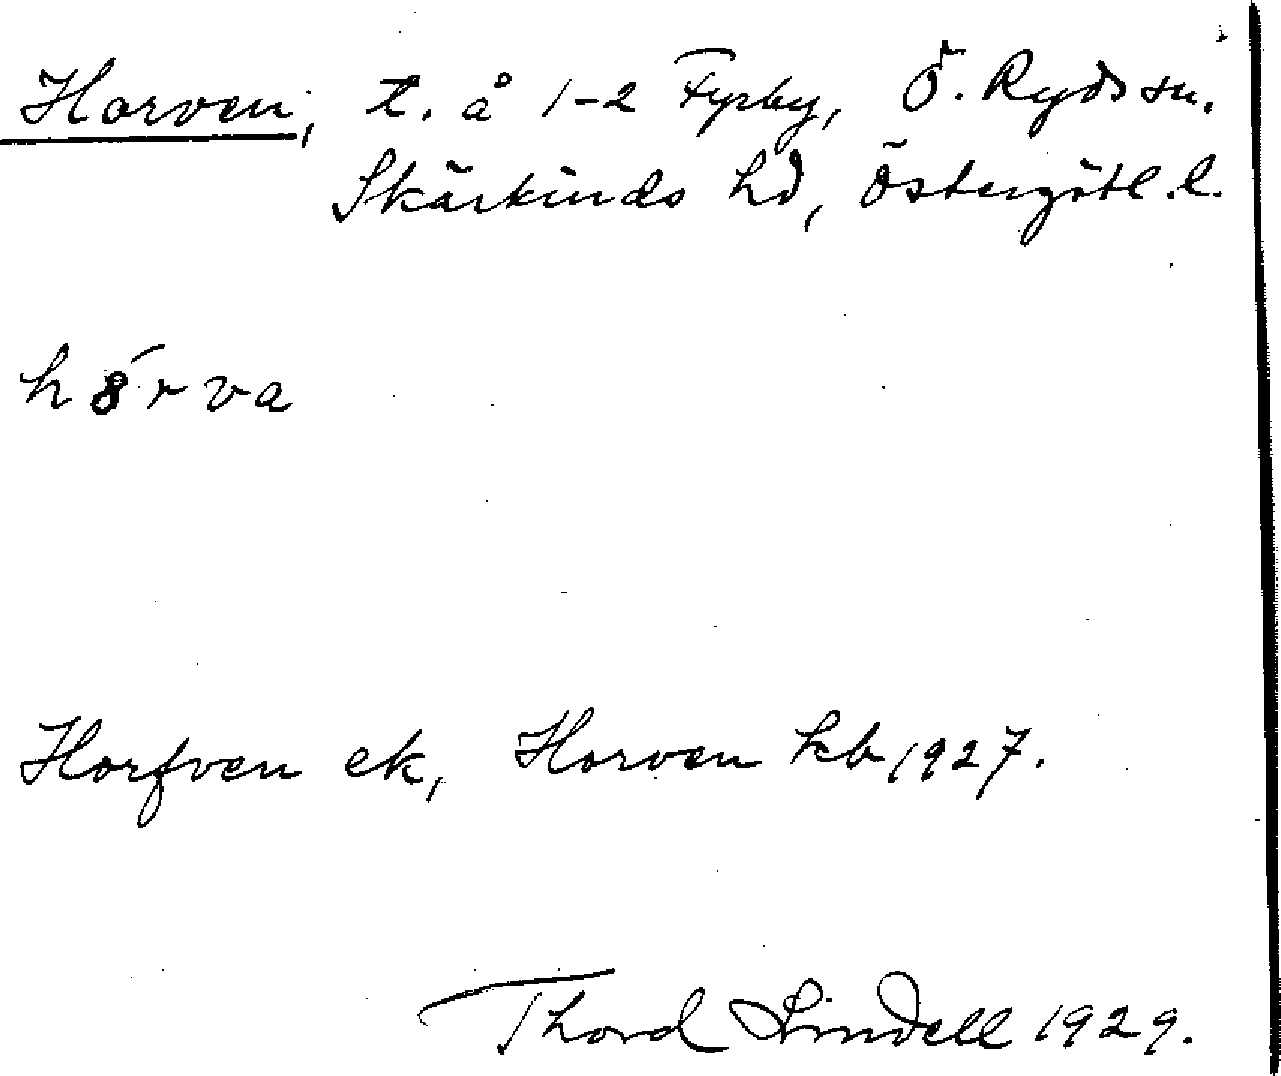 Horven, t. å 1-2 Fyrby, Ö. Ryds sn.
Skärkinds hd, Östergötl. l.
hȣ́rva
Horfven ek, Horven kb 1927.
Thord Lindell 1929.